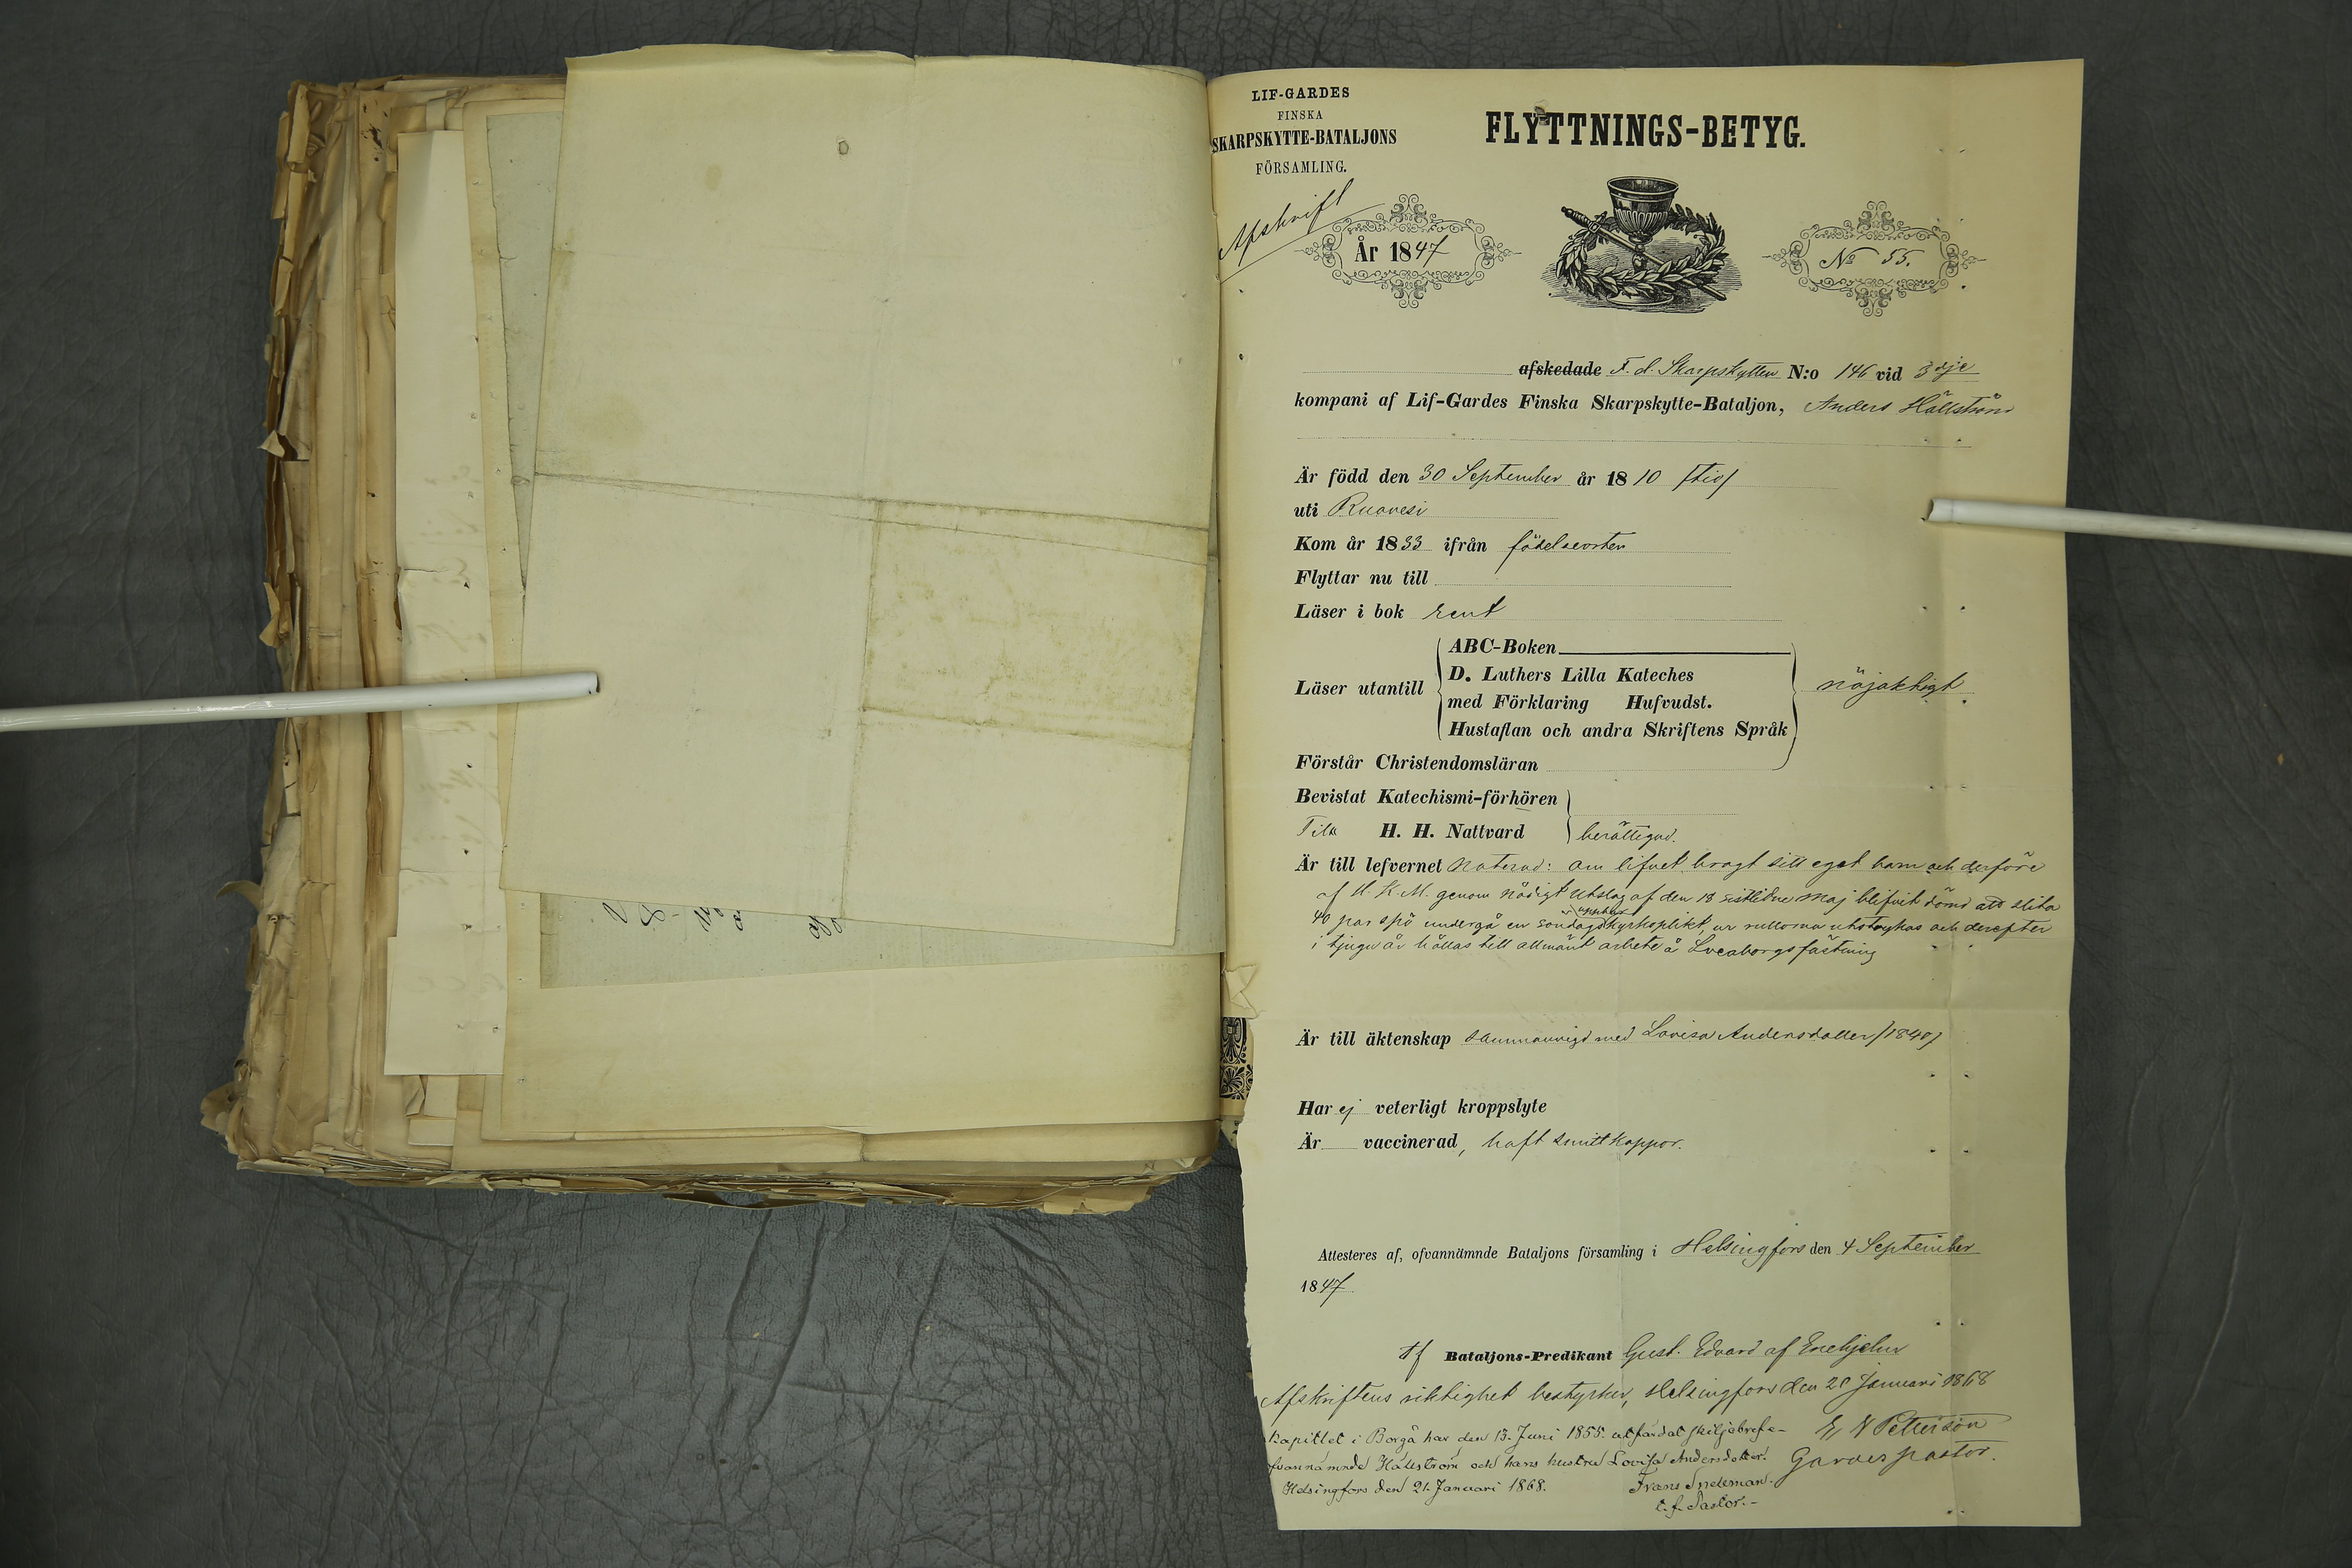 LIF-GARDES
FINSKA
SKARPSKYTTE-BATALJONS
FÖRSAMLING.
FLYTTNINGS-BETYG.
Afskrift
År 1847
No 55.
afskedade F. d. Skarpskytten N:o 146 vid 3dje
kompani af Lif-Gardes Finska Skarpskytte-Bataljon, Anders Hällström
Är född den 30 September år 1810 /tio/
uti Ruovesi
Kom år 1833 ifrån födelseorten
Flyttar nu till
Läser i bok rent
Läser utantill
ABC-Boken
D. Luthers Lilla Kateches
med Förklaring Hufvudst.
Hustaflan och andra Skriftens Språk
nöjaktigt
Förstår Christendomsläran
Bevistat Katechismi-förhören
Till H. H. Nattvard berättigad.
Är till lefvernet noterad: om lifvet bragt sitt eget barn och derföre
af H. K. M. genom nådigt utslag af den 18 sistlidne maj blifvit dömd att slita
40 par spö undergå en söndags kyrkoplikt, ur rullorna utstrykas och derefter
i tjugu år hållas till allmänt arbete å Sveaborgs fästning
Är till äktenskap sammanvigd med Lovisa Andersdotter /1840/
Har ej veterligt kroppslyte
Är vaccinerad, haft smittkoppor.
Attesteres af, ofvannämnde Bataljons församling i Helsingfors den 4 September
1847.
Bataljons-Predikant Gust. Edvard af Enehjelm
Afskriftens riktighet bestyrker, Helsingfors den 20 Januari 1868
E N Petterson
Gardespastor.
Kapitlet i Borgå har den 13. Juni 1855. utfärdat skiljobref e-
fvannämnde Hällström och hans hustru Lovisa Andersdotter.
Helsingfors den 21. Januari 1868. Frans Snelman.
t. f. Pastor.-